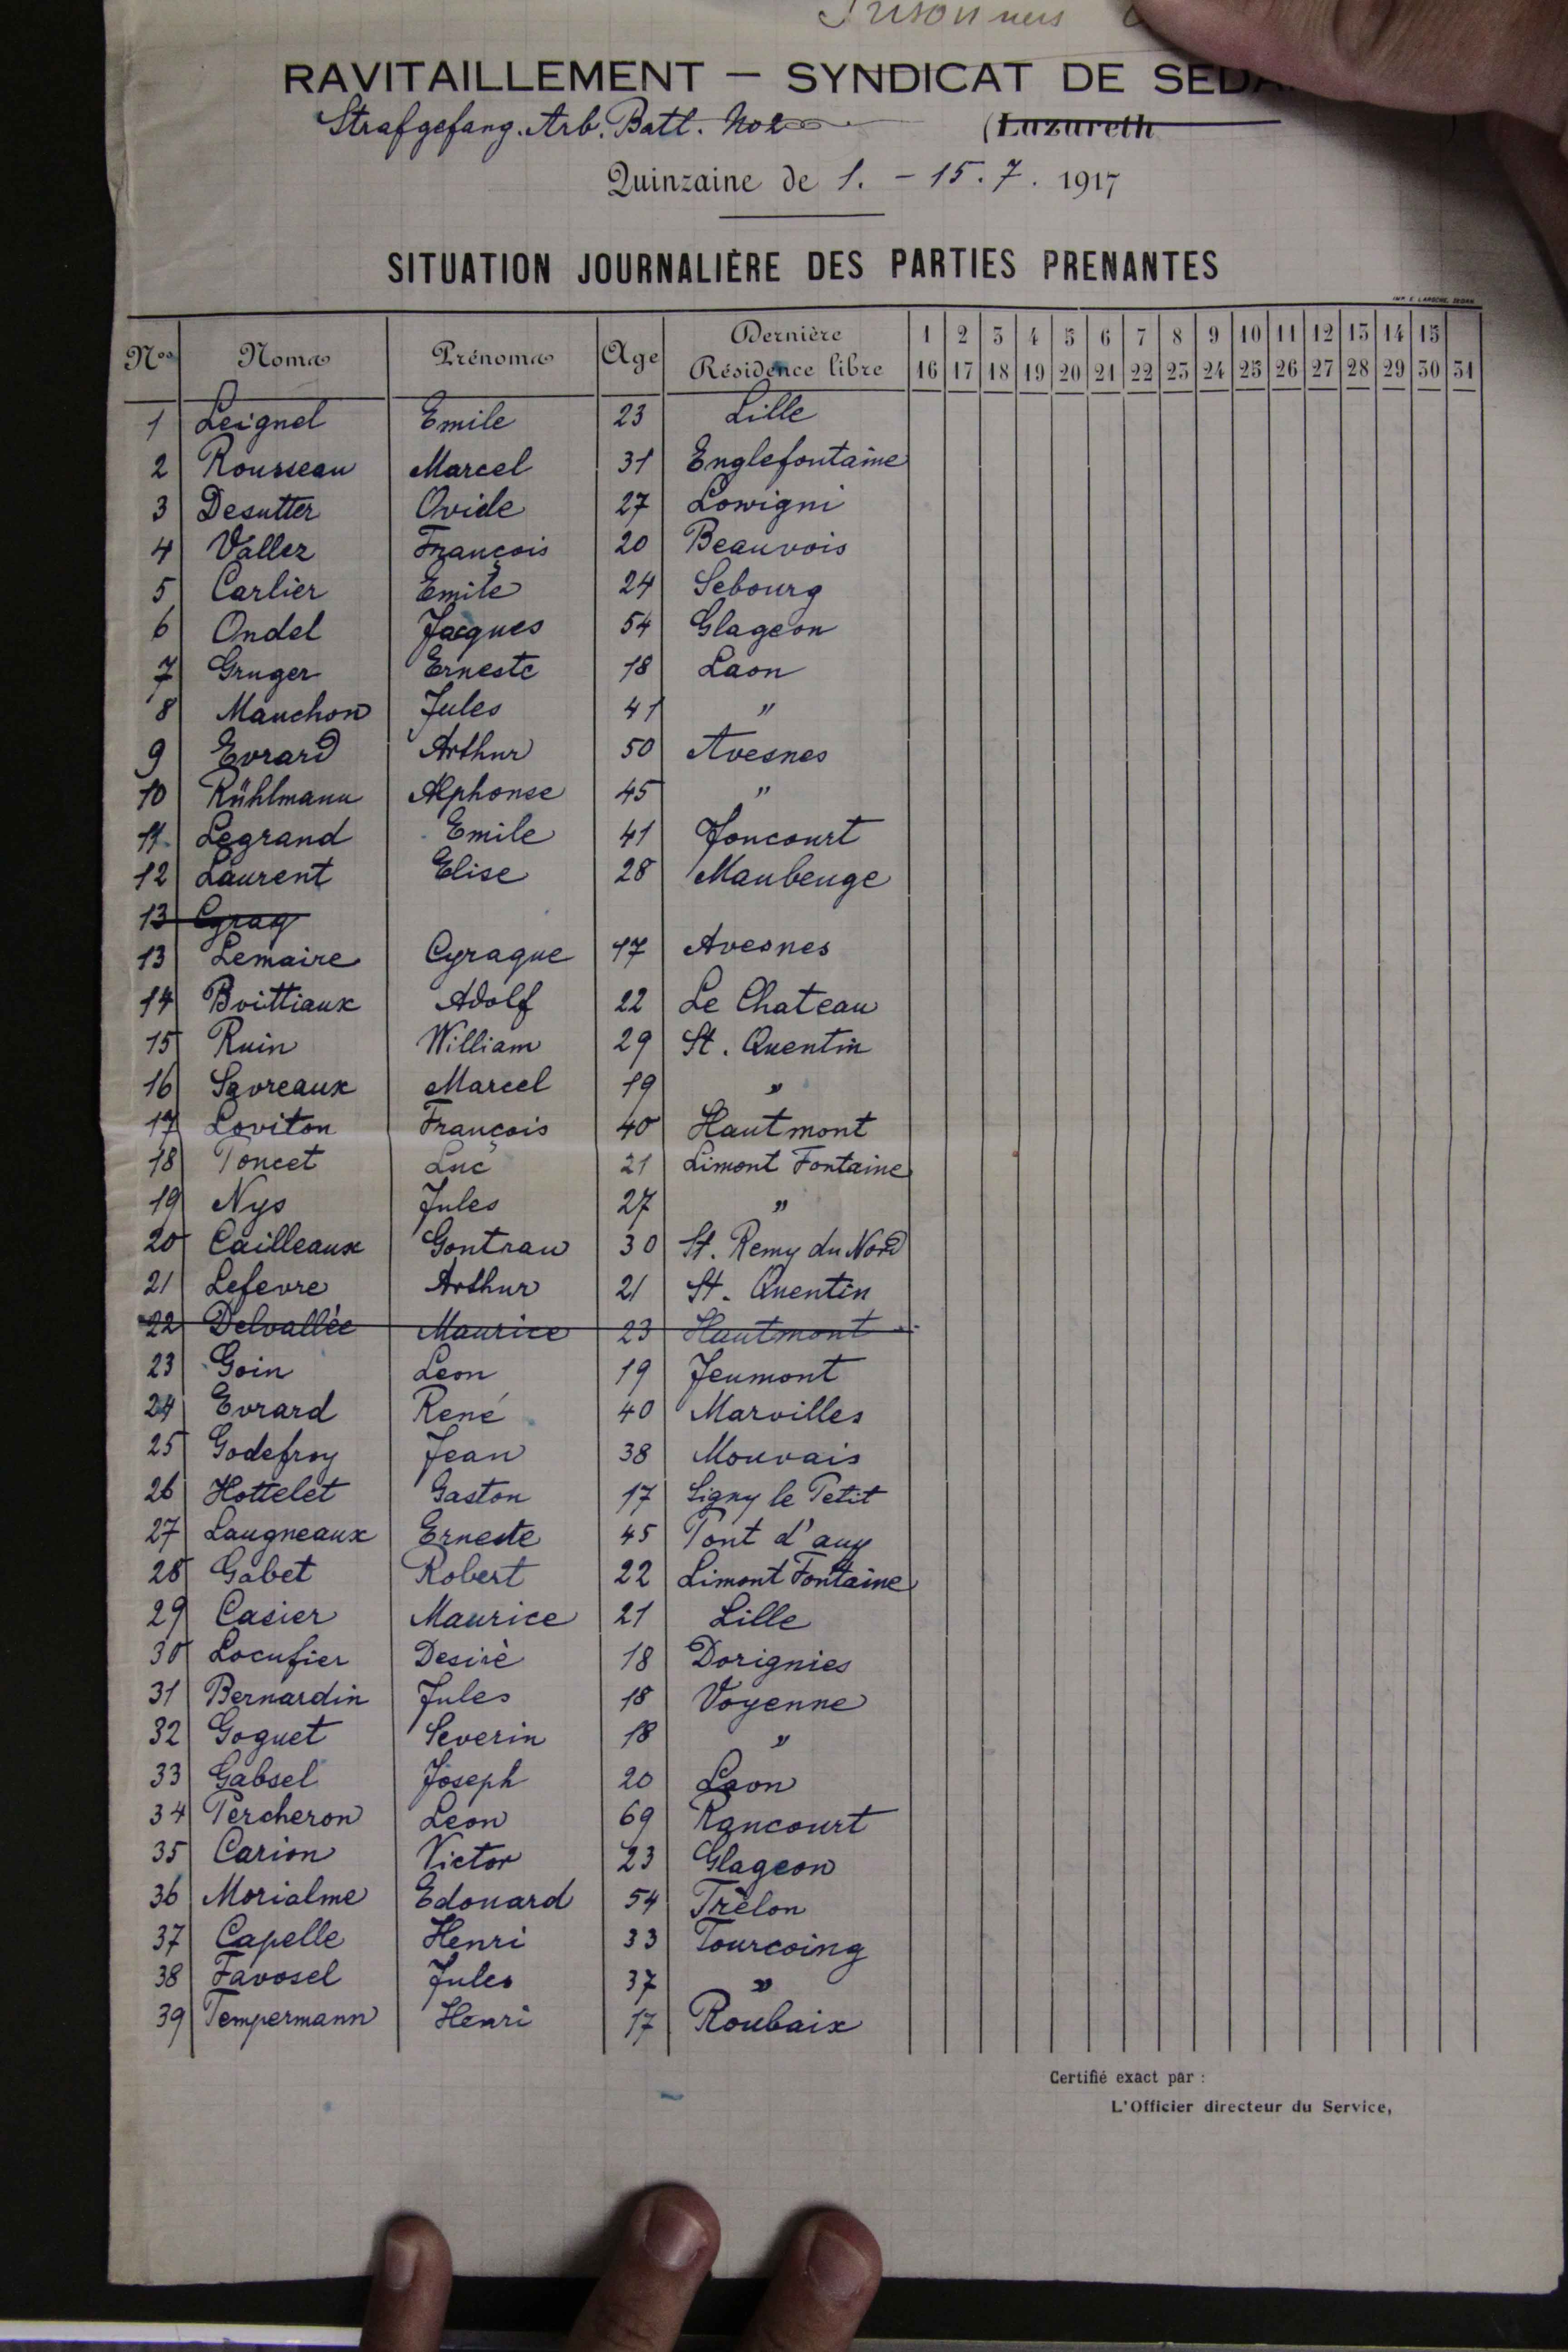 Prisonniers
RAVITAILLEMENT — SYNDICAT DE SEDA
Strafgefang. Arb. Batl. No 2 (Lazareth
Quinzaine de 1. - 15. 7. 1917
SITUATION JOURNALIÈRE DES PARTIES PRENANTES
IMP. E. LAROCHE, SEDAN
Nos Noms Prénoms Age Dernière Résidence libre 1 2 3 4 5 6 7 8 9 10 11 12 13 14 15
16 17 18 19 20 21 22 23 24 25 26 27 28 29 30 31
1 Leignel Emile 23 Lille
2 Rousseau Marcel 31 Englefontaine
3 Desutter Ovide 27 Lowigni
4 Vallez François 20 Beauvois
5 Carlier Emile 24 Sebourg
6 Ondel Jacques 54 Glageon
7 Gruger Erneste 18 Laon
8 Mauchon Jules 41 "
9 Evrard Arthur 50 Avesnes
10 Rühlmann Alphonse 45 "
11 Legrand Emile 41 Joncourt
12 Laurent Elise 28 Maubeuge
13 Cyraq
13 Lemaire Cyraque 17 Avesnes
14 Boittiaux Adolf 22 Le Chateau
15 Ruin William 29 St. Quentin
16 Savreaux Marcel 19 "
17 Loviton François 40 Hautmont
18 Poncet Luc 21 Limont Fontaine
19 Nys Jules 27 "
20 Cailleaux Gontrau 30 St. Remy du Nord
21 Lefevre Arthur 21 St. Quentin
22 Delvallée Maurice 23 Hautmont
23 Goin Leon 19 Jeumont
24 Evrard René 40 Marvilles
25 Godefroy Jean 38 Mouvais
26 Hottelet Gaston 17 Ligny le Petit
27 Laugneaux Erneste 45 Pont d'auy
28 Gabet Robert 22 Limont Fontaine
29 Casier Maurice 21 Lille
30 Locufier Desirè 18 Dorignies
31 Bernardin Jules 18 Voyenne
32 Goguet Severin 18 "
33 Gabsel Joseph 20 Laon
34 Percheron Leon 69 Rancourt
35 Carion Victor 23 Glageon
36 Morialme Edouard 54 Trèlon
37 Capelle Henri 33 Tourcoing
38 Favosel Jules 37 "
39 Tempermann Henri 17 Roubaix
Certifié exact par :
L'Officier directeur du Service,